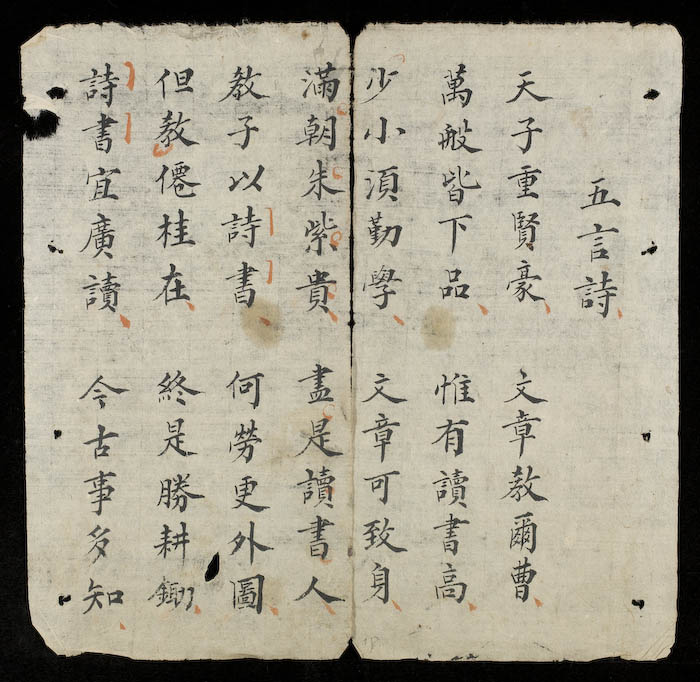 五言詩
天子重賢豪 文章教爾曹
萬般皆下品 惟有讀書高
少小須勤學 文章可致身
滿朝朱紫貴 盡是讀書人
教子以詩書 何勞更外圖
但教僊桂在 終是勝耕鋤
詩書宜廣讀 今古事多知